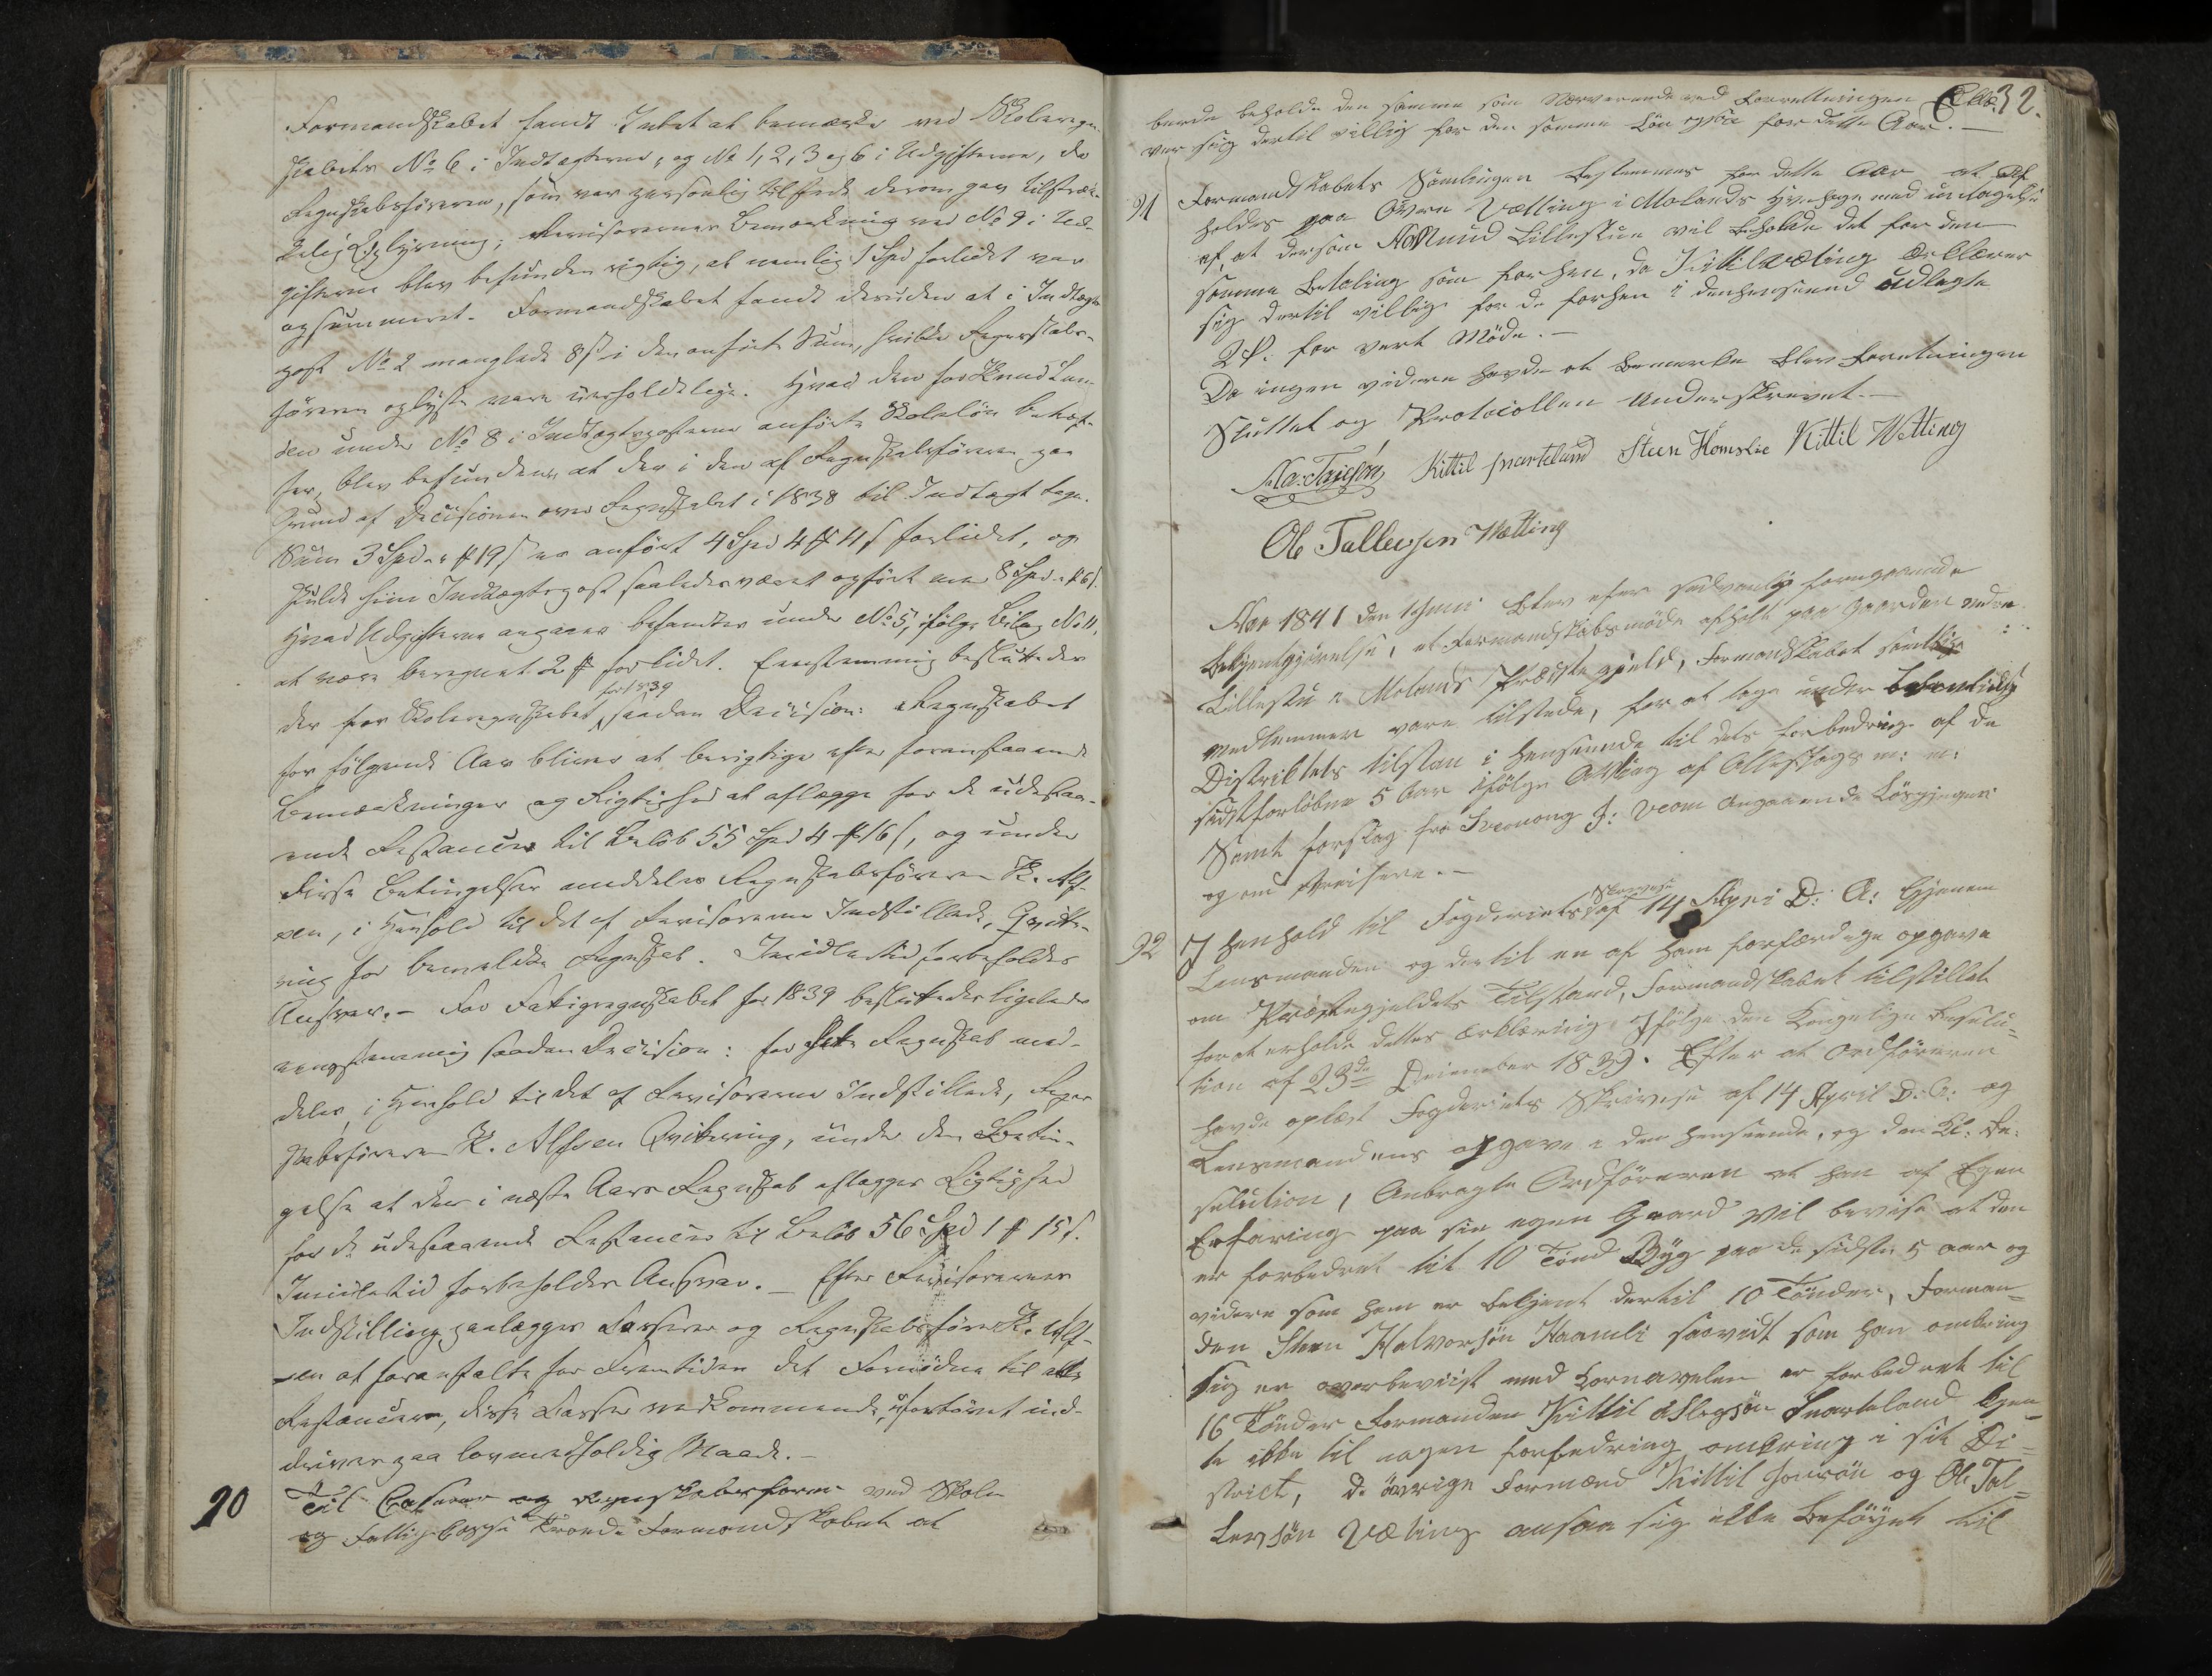 Formandskabet fandt Intet at bemærke ved Skoleregn-
skabets No 6 i Indtægterne, og No 1, 2, 3 og 6 i Udgifterne, da
Regnskabsføreren, som var personlig tilstede derom gav tilstræk-
kelig Oplysning; Revisorernes Bemærkning ved No 9 i Ud-
gifterne blev befunden rigtig, at nemlig 1 Spd forlidet var
opsummeret. Formandskabet fandt desuden at i Indtægts
post No 2 manglede 8 s i den anførte Sum, hvilke Regnskabs-
føreren oplyste være uerholdelige. Hvad den for Knud Lan-
den under No 8 i Indtægtsposterne anførte Skoleløn betræf-
fer, blev befunden, at der i den af Regnskabsføreren paa
Grund af Decisionen over Regnskabet i 1838 til Indtægt tagne
Sum 3 Spd " # 19 s er anført 4 Spd 4 # 4 s forlidet, og
skulde hiin Indtægtspost saaledes været opført med 8 Spd " # 6 s.
Hvad Udgifterne angaaer befandtes under No 5, ifølge Bilag No 11,
at være beregnet 2 # forlidet. Eenstemmig besluttedes
for 1839
der for Skoleregnskabet saadan Decision: Regnskabet
for følgende Aar bliver at berigtige efter foranstaaende
Bemærkninger og Rigtighed at aflægge for de udestaa-
ende Restancer til Beløb 55 Spd 4 # 16 s, og under
disse Betingelser meddeles Regnskabsføreren K. Alf-
sen, i Henhold til det af Revisorerne Indstillede, Qvitte-
ring for bemeldte Regnskab. Imidlertid forbeholdes
Ansvar. - For Fattigregnskabet for 1839 besluttedes ligeledes
eenstemmig saadan Decision: for dette Regnskab med-
deles, i Henhold til det af Revisorerne Indstillede, Regn
skabsføreren K. Alfsen Qvittering, under den Betin-
gelse at der i næste Aars Regnskab aflægges Rigtighed
for de udestaaende Restancer til Beløb 56 Spd 1 # 15 s.
Imidlertid forbeholdes Ansvar. - Efter Revisorernes
Indstilling paalægges Kasserer og Regnskabsfører K. Alf-
sen at foranstalte for Fremtiden det Fornødne til alle
Restancer, disse Kasser vedkommende, ufortøvet ind-
drives paa lovmedholdig Maade. -
20 Til Caserer og Regnskabsfører ved Skole
og Fattig Casse troede Formandskabet at
32.
burde beholde den samme som Nærværende ved Forretningen Erklæ-
rer sig dertil villig for den samme Løn ogsaa for dette Aar. -
21 Formandskabets Samlingen bestemmes for dette Aar at af
holdes paa Øvre Vætting i Molands Hvesogn med undtagelse
af, at dersom Aamund Lillestue vil beholde det for den
samme betaling som forhen, da Kittil Væting Erklærer
sig dertil villig for de forhen i denhenseend udlagte
2 # for vert Møde. -
Da ingen videre havde at bemerke blev Forretningen
Sluttet og Protocollen Underskrevet. -
Kittil Snarteland Steen Homslie Kittil Wetting
Ole Tallevsen Wætting
Aar 1841 den 1 Juni blev efter sedvanlig foregaaende
Bekjentgjørelse, et Formandskabsmøde afholt paa Gaarden nedre
Lillestu i Molands Præstegjeld, Formandskabet samtlige
Medlemmer vare tilstede, for at tage under
Distriktets tilstan i henseende til dets forbedring af de
sidstforløbne 5 Aar ifølge m: m:
Samt forslag fra J: Veom Angaaende Løsgjenger
og om
22 I henhold til Fogderiets Skrivelse af 14 April D: A: Gjenem
Lensmanden og dertil en af ham forfærdige opgave
om Præstegjeldets Tilstand, Formandskabet tilstillet
for at erholde dettes Erklæring, Ifølge den Kongelige Resolu-
tion af 23de December 1839. Efter at Ordføreren
havde oplæst Fogderiets Skrivelse af 14 April D: A: og
Lensmandens opgave i den henseende, og den Kl: Re-
solution, Anbragte Ordføreren at han af Egen
Erfaring paa sin egen Gaard vil bevise at den
er forbedret til 10 Tønd Byg paa de sidste 5 aar og
videre som ham er bekjent dertil 10 Tønder, Forman-
den Steen Halvorsøn Haamli saavidt som han omkring
sig er overbeviist med Kornavelen er forbedret til
16 Tønder Formanden Kittil Aslagsøn Snarteland kjen-
te ikke til nogen forbedring omkring i sit Di-
strict, de øvrige Formænd Kittil Jonsøn og Ole Tal-
levsøn Væting ansaa sig ikke beføyet til